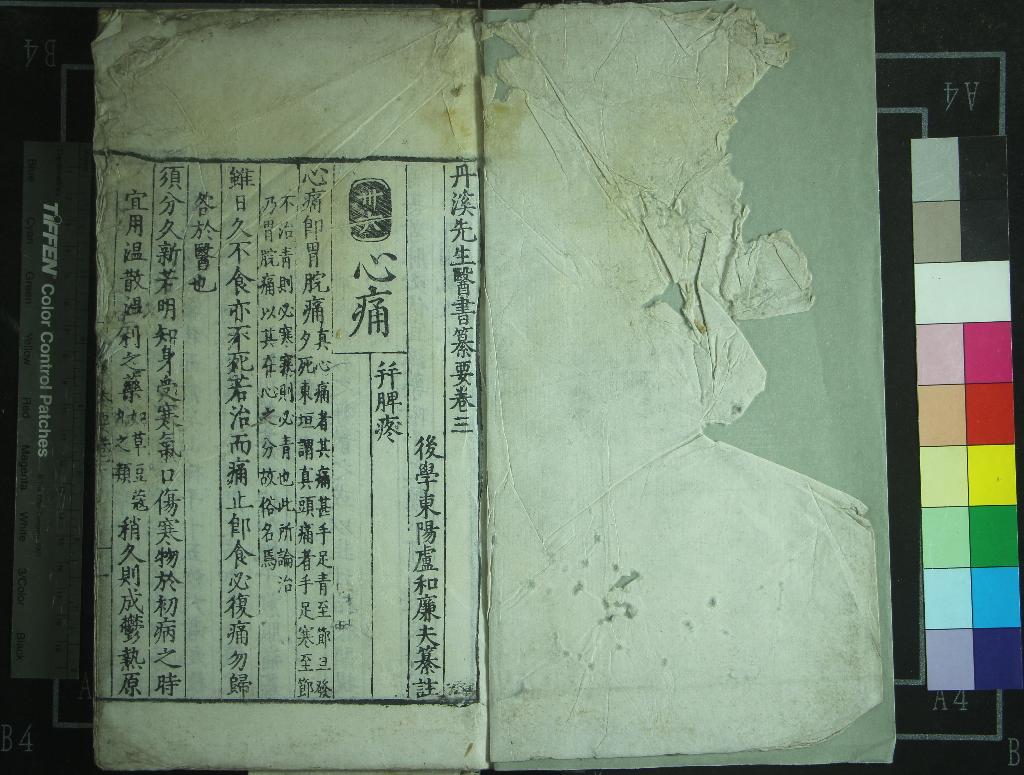 丹溪先生醫書纂要卷三
後學東陽盧和廉夫纂註
卅六
心痛
并脾疼
心痛即胃脘痛
真心痛者其痛甚手足青至節旦發
夕死東垣謂真頭痛者手足寒至節
不治青則必寒寒則必青也此所論治
乃胃脘痛以其在心之分故俗名焉
雖日久不食亦不死若治而痛止即食必復痛勿歸
咎於醫也
須分久新若明知身受寒氣口傷寒物於初病之時
宜用温散温利之藥
如草豆蔻
丸之類
稍久則成鬱熱原
TIFFEN Color Control Patches
Blue
Cyan
Green
Yellow
Red
Magenta
White
3/Color
Black
B4
A4
B4
A4